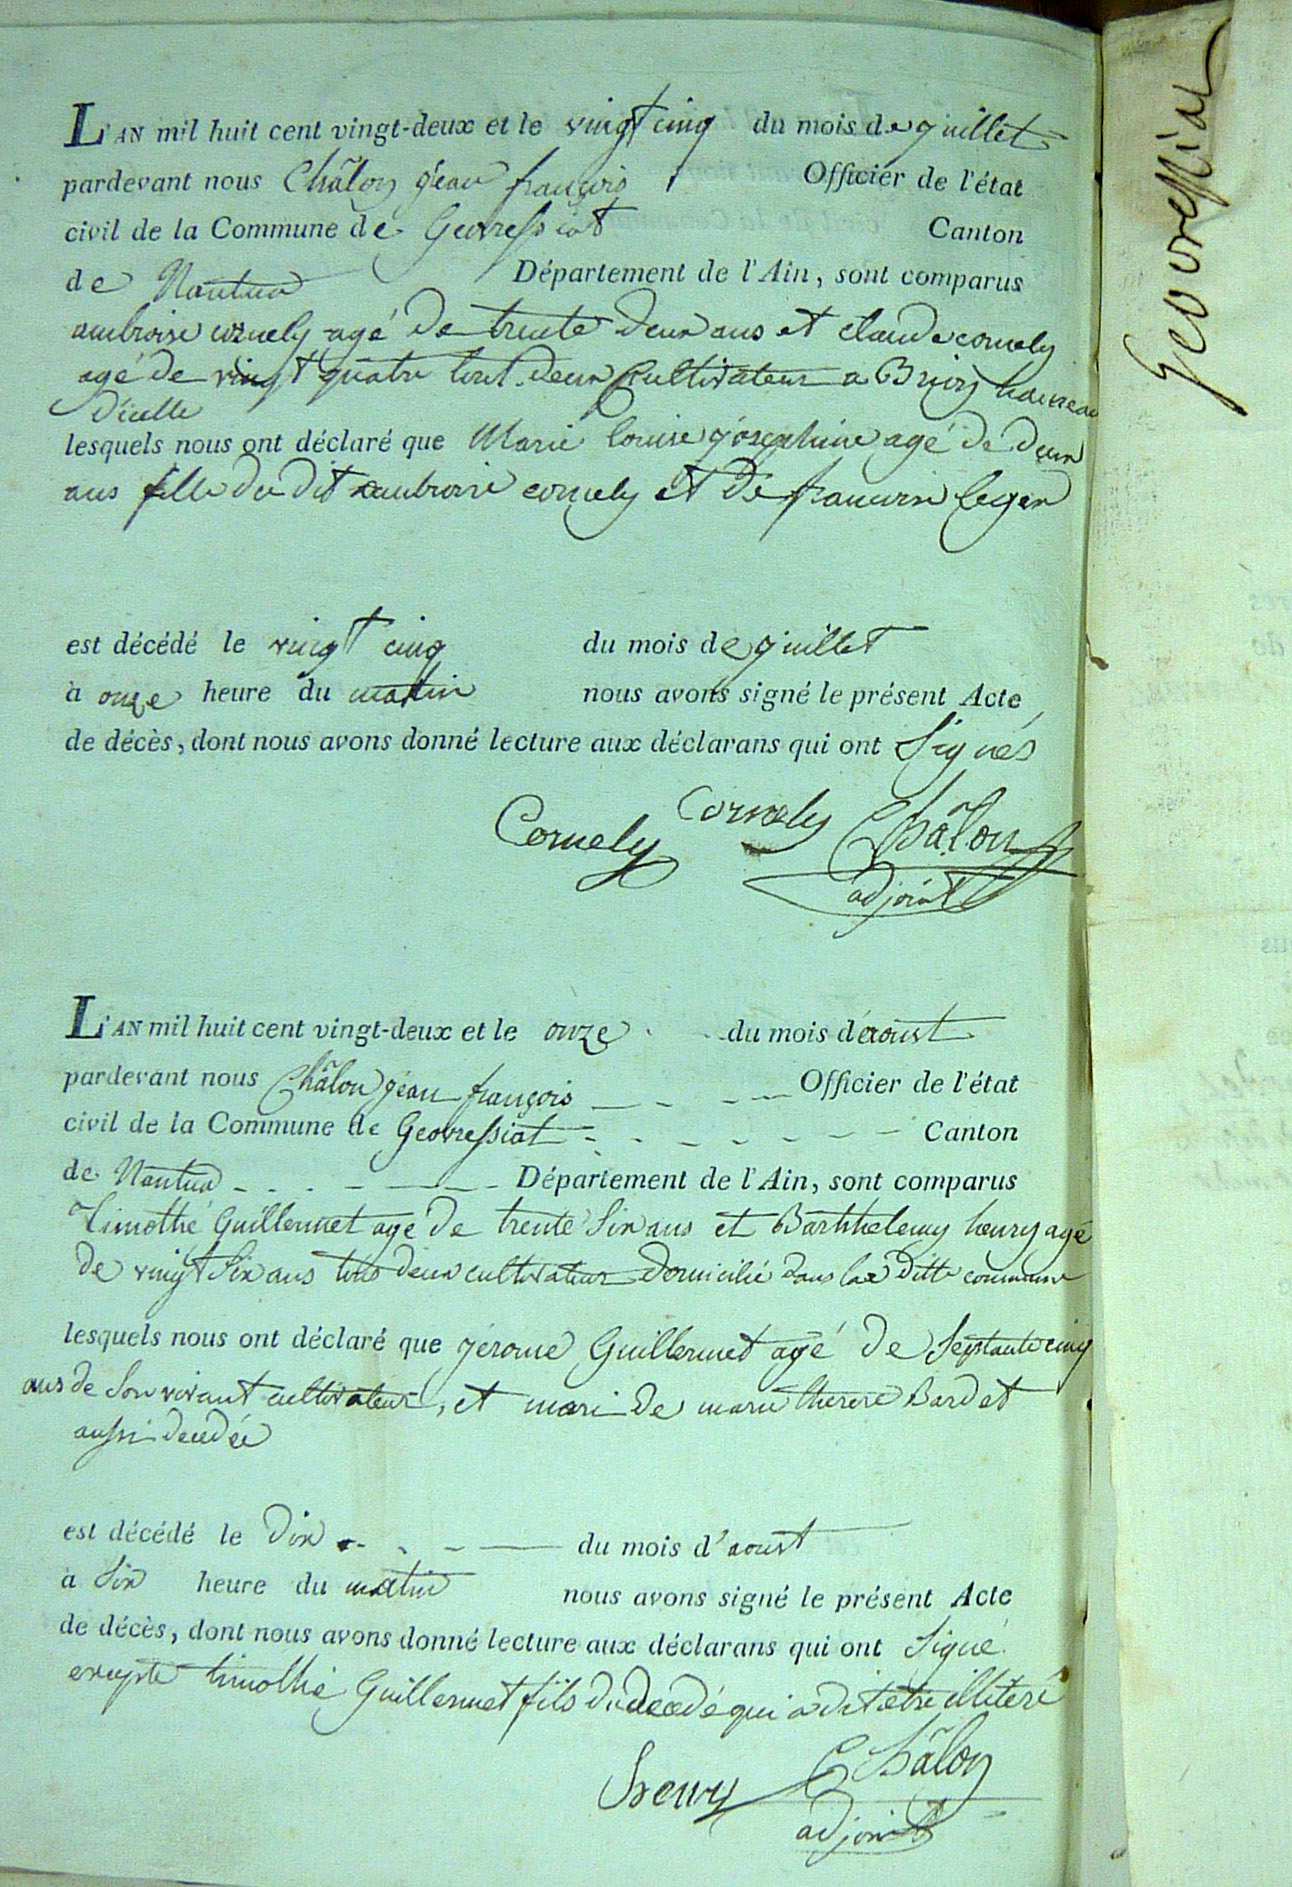 L'AN mil huit cent vingt-deux et le vingt cinq du mois de juillet
pardevant nous Châlon jean françois Officier de l'état
civil de la Commune de Geovressiat Canton
de Nantua Département de l'Ain, sont comparus
ambroise cornely agé de trente deux ans et claude cornely
agé de vingt quatre tout deux Cultivateur a Brion hameau
d'icelle
lesquels nous ont déclaré que Marie louise josephine agé de deux
ans fille du dit ambroise cornely et de francoise leger
est décédé le vingt cinq du mois de juillet
à onze heure du matin nous avons signé le présent Acte
de décès, dont nous avons donné lecture aux déclarans qui ont Signés
Cornely Cornely Châlon
adjoint
L'AN mil huit cent vingt-deux et le onze du mois d'aoust
pardevant nous Châlon jean françois Officier de l'état
civil de la Commune de Geovressiat Canton
de Nantua Département de l'Ain, sont comparus
Timothé Guillermet agé de trente Six ans et Barthhelemy henry agé
de vingt Six ans tous deux cultivateur domicilié dans la ditte commune
lesquels nous ont déclaré que jérome Guillermet agé de Septante cinq
ans de Son vivant cultivateur, et mari de marie therese Bardet
aussi decedée
est décédé le dix du mois d'aoust
à Six heure du matin nous avons signé le présent Acte
de décès, dont nous avons donné lecture aux déclarans qui ont Signé
excepte timothé Guillermet fils du decedé qui a dit etre illiteré
henry Châlon
adjoint
Geovressiat